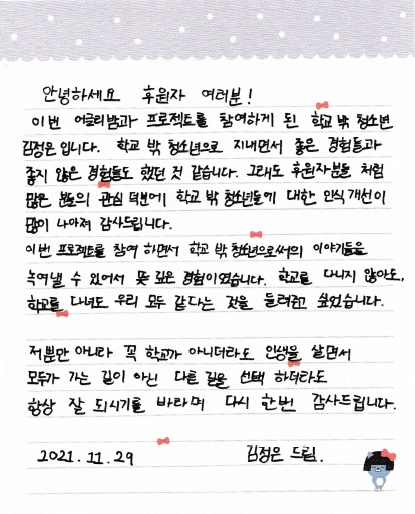 안녕하세요 후원자 여러분!
이번 어글리밤과 프로젝트를 참여하게 된 학교 밖 청소년
김정은입니다. 학교 밖 청소년으로 지내면서 좋은 경험들과
좋지 않은 경험들도 했던 것 같습니다. 그래도 후원자분들 처럼
많은 분들의 관심 덕분에 학교 밖 청소년들에 대한 인식개선이
많이 나아져 감사드립니다.
이번 프로젝트를 참여 하면서 학교 밖 청소년으로써의 이야기들을
녹여낼 수 있어서 뜻 깊은 경험이였습니다. 학교를 다니지 않아도,
학교를 다녀도 우리 모두 같다는 것을 들려주고 싶었습니다.
저뿐만 아니라 꼭 학교가 아니더라도 인생을 살면서
모두가 가는 길이 아닌 다른 길을 선택 하더라도
항상 잘 되시기를 바라며 다시 한번 감사드립니다.
2021.11.29 김정은 드림.